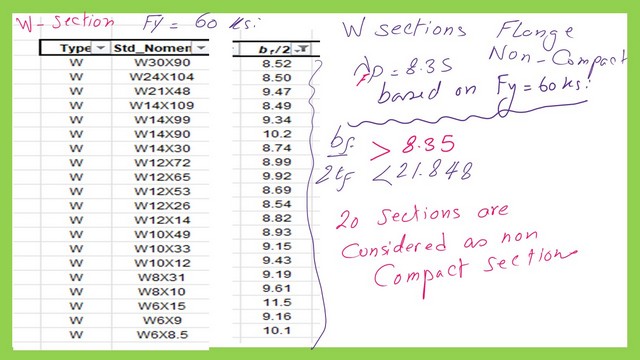 W-Section Fy = 60 ksi
Type Std_Nomen bf/2
W W30X90 8.52
W W24X104 8.50
W W21X48 9.47
W W14X109 8.49
W W14X99 9.34
W W14X90 10.2
W W14X30 8.74
W W12X72 8.99
W W12X65 9.92
W W12X53 8.69
W W12X26 8.54
W W12X14 8.82
W W10X49 8.93
W W10X33 9.15
W W10X12 9.43
W W8X31 9.19
W W8X10 9.61
W W6X15 11.5
W W6X9 9.16
W W6X8.5 10.1
W sections Flange
Non-Compact
λpF = 8.35
based on Fy = 60 ksi
bf/2tf > 8.35
< 21.848
20 sections are
Considered as non
Compact section